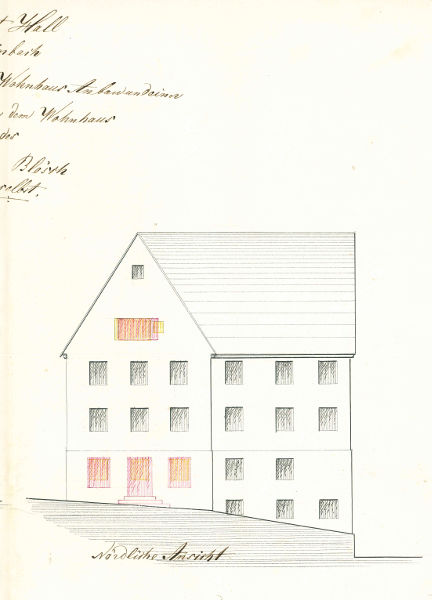 Hall
bach
Wohnhaus Anbau und einer
dem Wohnhaus
des
Blösch
selbst.
Nördliche Ansicht